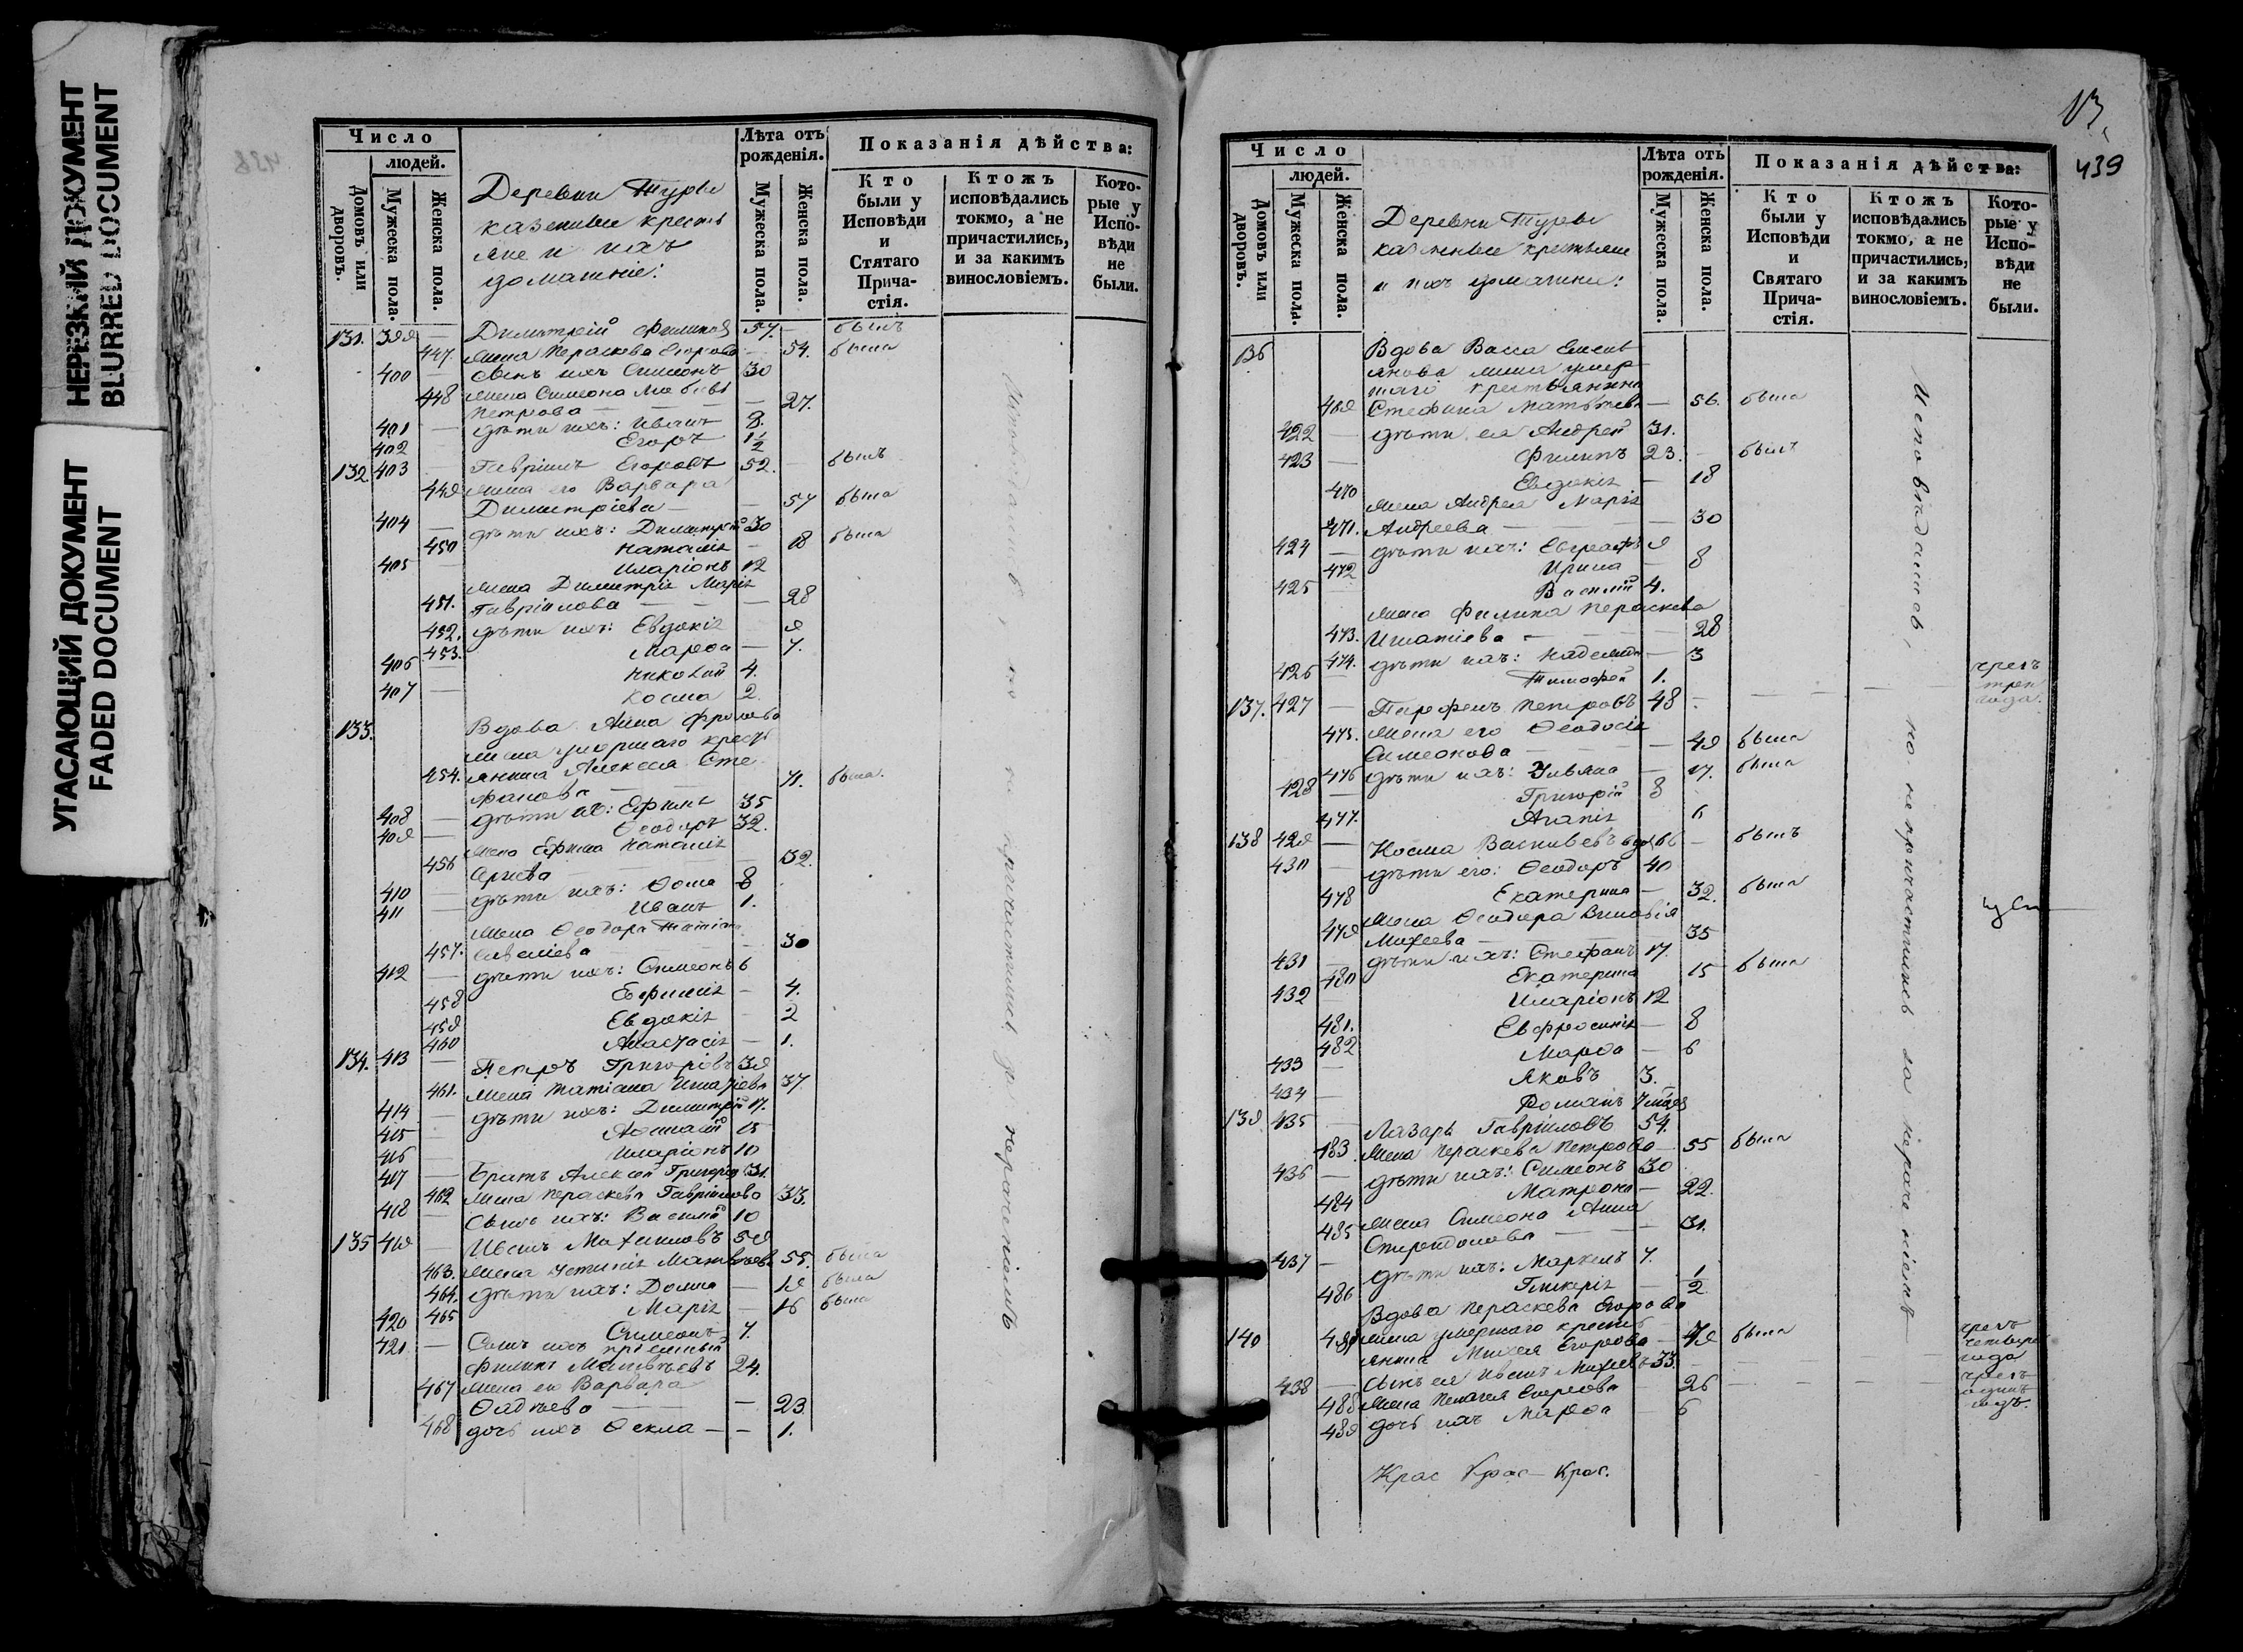 НЕРЕЗКИЙ ДОКУМЕНТ
BLURRED DOCUMENT
УГАСАЮЩИЙ ДОКУМЕНТ
FADED DOCUMENT
Число
людей.
Домовъ или дворовъ.
Мужеска пола.
Женска пола.
Деревни Туры
казенные кресть
яне и ихъ
домашніе:
Лѣта отъ рожденія.
Мужеска пола.
Женска пола.
Показанія дѣйства:
Кто были у Исповѣди и Стятаго Прича-стія.
Ктожъ исповѣдались токмо, а не причастились, и за какимъ винословіемъ.
Кото-рые у Испо-вѣди не были.
131. 399 — Димитрій Филипов 57. — былъ
447. Жена Параскева Егорова — 54. была
400 — Сынъ ихъ Симеонъ 30
448 Жена Симеона Любовь
Петрова — — 27.
401 — дѣти ихъ: Иванъ 8.
402 Егоръ 1½
132 403 — Гавріилъ Егоровъ 52. — былъ
449 Жена его Варвара
Димитріева — — 57 была
404 — дѣти ихъ: Димитрій 30
450 Наталія — 18 была
405 — Иларіонъ 12
Жена Димитрія Марія
451. Гавріилова — — 28
452. дѣти ихъ: Евдокія — 9
453. Марѳа — 7.
406 — Николай 4.
407 — Косма 2.
133. Вдова Анна Фролова
жена умершаго кресть
454. янина Алексея Сте
фанова — 71. была.
408 — дѣти ея: Ефимъ 35
409 — Ѳеодоръ 32.
Жена Ефима Наталія
456 — 32.
410 — дѣти ихъ: Ѳома 8
411 — Иванъ 1.
Жена Ѳеодора Татіана
457. Савеліева — 30
412 — дѣти ихъ: Симеонъ 6
458 Евфимія — 4.
459 Евдокія — 2
460 Анастасія — 1.
134. 413 — Петръ Григорьевъ 39
461. Жена Татіана Игнатіева 37
414 — дѣти ихъ: Димитрій 17.
415 — 15
416 — Иларіонъ 10
417 — Братъ Алексей Григорьев 31.
462 Жена Параскева Гавріилова 33.
418 — Сынъ ихъ: Василій 10
135 419 — Иванъ Максимовъ 59
463. Жена Устинія Матвѣева 55. была
464. дѣти ихъ: Домна — 19 была
465 Марія — 16 была
420 Симеонъ 7.
421 — Сынъ ихъ пріемный
Филипъ Матвѣевъ 24.
467 Жена его Варвара
Ѳадѣева — — 23
468 дочь ихъ Ѳекла — — 1.
Исповѣдались, но не причастились за нераченіемъ
13.
439
Число
людей.
Домовъ или дворовъ.
Мужеска пола.
Женска пола.
Деревни Туры
казенные крестьяне
и ихъ домашніе:
Лѣта отъ рожденія.
Мужеска пола.
Женска пола.
Показанія дѣйства:
Кто были у Исповѣди и Святаго Прича-стія.
Ктожъ исповѣдались токмо, а не причастились, и за какимъ винословіемъ.
Кото-рые у Испо-вѣди не были.
136 Вдова Васса Емель
янова жена умер
шаго крестьянина
469 Стефана Матвѣева — 56. была
422 — дѣти ея Андрей 31.
423 — Филипъ 23. — былъ
470 Евдокія — 18
Жена Андрея Марія
471. Андреева — — 30
424 — дѣти ихъ: Евграфъ 9
472 Ирина — 8
425 — Василій 4.
Жена Филипа Параскева
473. Игнатіева — — 28
474. дѣти ихъ: Надежда — 3
426 — Тимофей 1.
137. 427 — Парфенъ Петровъ 48 — чрезъ три года.
475. Жена его Ѳеодосія
Симеонова — — 49 была
476 дѣти ихъ: Уліяна — 17. была
428 — Григорій 8
477. Агапія 6
138 429 — Косма Васильевъ вдов 66 — былъ
430 — дѣти его: Ѳеодоръ 40
478 Екатерина — 32. была
Жена Ѳеодора Зиновія
479 Михеева — 35
431 — дѣти ихъ: Стефанъ 17.
480 Екатерина 15 была
432 — Иларіонъ 12
481. Евфросинія — 8
482 Марѳа — 6
433 — Яковъ 3.
434 — Романъ
139 435 — Лазарь Гавріиловъ 54.
483. Жена Параскева Петрова — 55 была
436 — дѣти ихъ: Симеонъ 30
484 Матрона — 22.
Жена Симеона Анна
485 Спиридонова — — 31.
437 — дѣти ихъ: Маркелъ 7.
486 Гликерія — ½
Вдова Параскева Егорова
140 жена умершаго кресть
янина Михея Егорова — 79 была чрезъ четыре года
438 — Сынъ ея Иванъ Михеевъ 33. — чрезъ одинъ годъ.
488 Жена Пелагея — 26
489 дочь ихъ Марѳа — 6
Исповѣдались, но не причастились за нераченіемъ